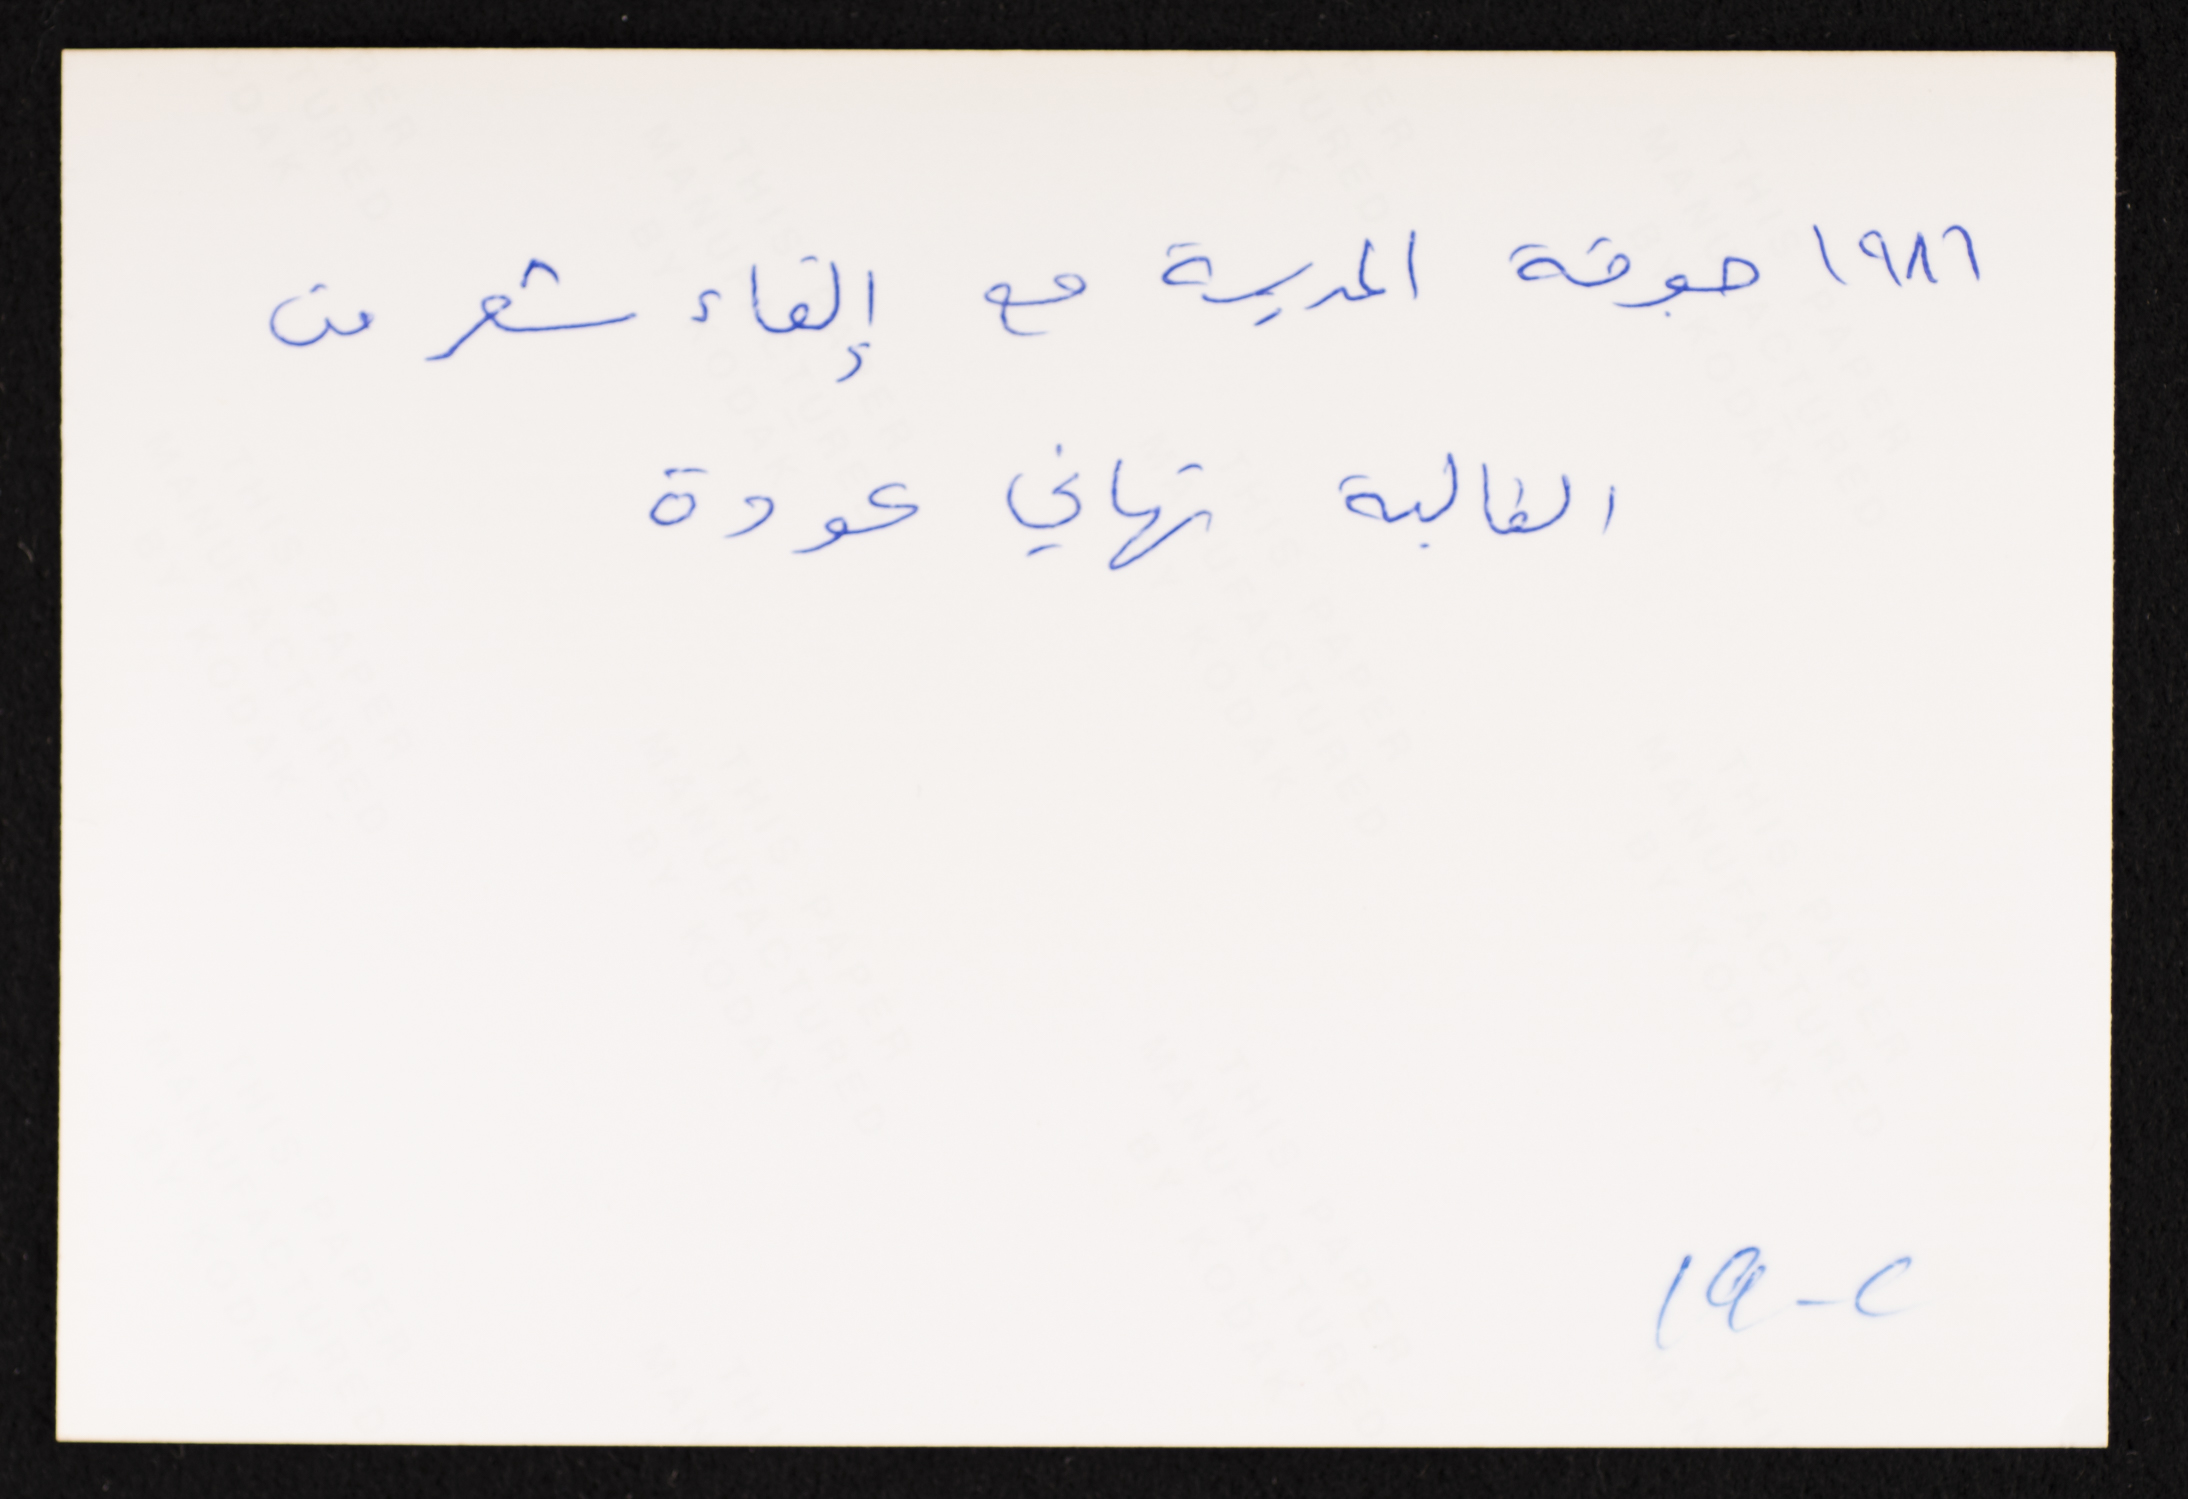 ١٩٨٦ جوقة المدرسة مع إلقاء شعر من
الطالبة تهاني عودة
١٩-٢
THIS PAPER
MANUFACTURED
BY KODAK